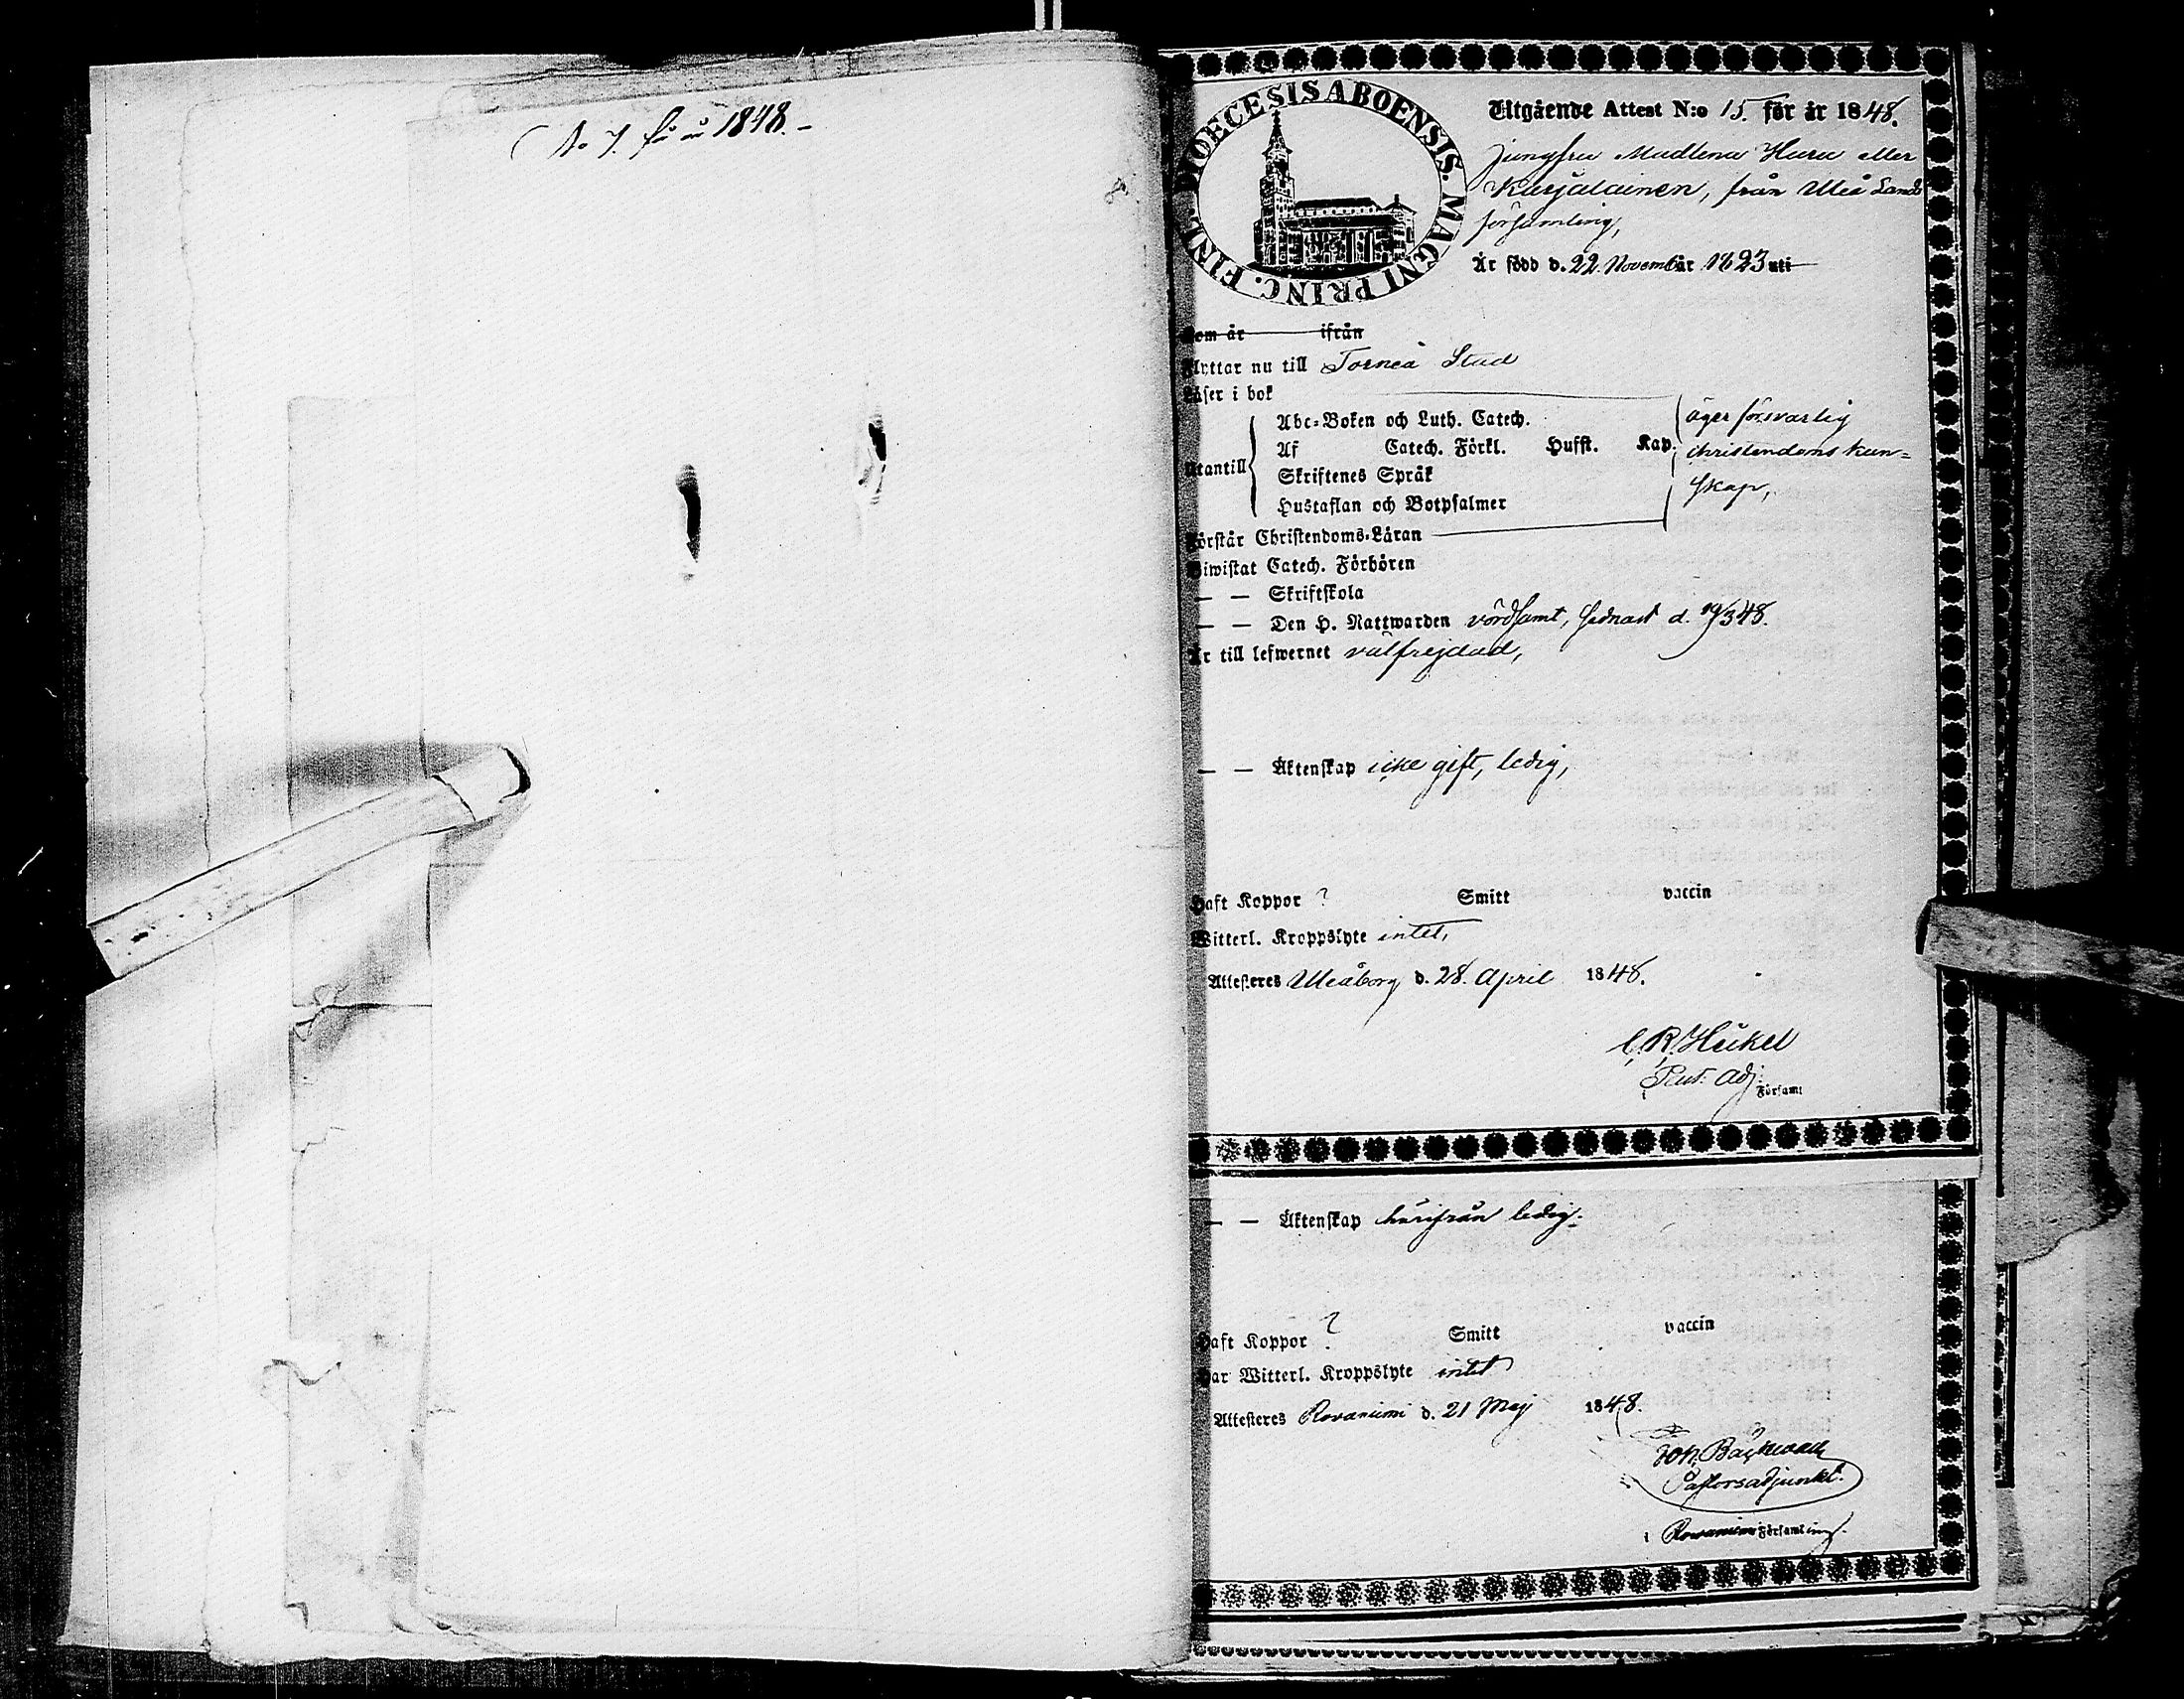 No 7. för år 1848.-
FINL. DIOECESIS ABOENSIS. MAGNI PRINC.
Utgående Attest N:o 15. för år 1848.
Jungfru Madlena Huru eller
Karjalainen, från Uleå Lands
församling,
Är född d. 22. November 1823 uti
Som är ifrån
Flyttar nu till Torneå Stad
Läser i bok
Abc-Boken och Luth. Catech.
Af Catech. Förkl. Husst. Kap.
Utantill
Skriftenes Språk
Hustaflan och Botpsalmer
äger försvarlig
christendoms kun-
skap,
Förstår Christendoms-Läran
Biwistat Catech. Förhören
— — Skriftskola
— — Den H. Nattwarden vördsamt, sednast d. 19/3 48.
Är till lefwernet välfrejdad,
— — Äktenskap icke gift, ledig,
Haft Koppor ? Smitt vaccin
Witterl. Kroppslyte intet,
Attesteres Uleåborg d. 28. April 1848.
C. R. Heikel
Past: Adj:
i Församl
— — Äktenskap härifrån ledig.
Haft Koppor ? Smitt vaccin
Har Witterl. Kroppslyte intet
Attesteres Rovaniemi d. 21 Maj 1848.
Joh. Bäckwall
Pastorsadjunkt.
i Rovaniemi Församling.